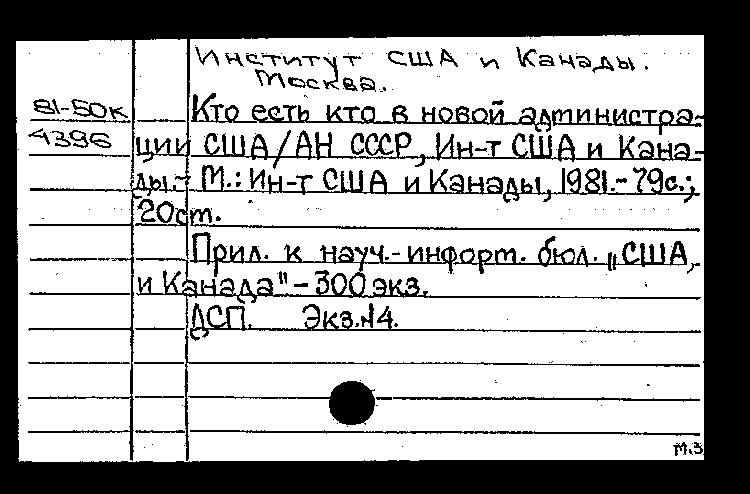 Институт США и Канады.
Москва.
81-50К
4396
Кто есть кто в новой администра-
ции США/АН СССР, Ин-т США и Кана-
ды.- М.: Ин-т США и Канады, 1981.- 79с.;
20ст.
Прил. к науч.-информ. бюл. „США,
и Канада" - 300 экз.
ДСП. Экз.№4.
м.з